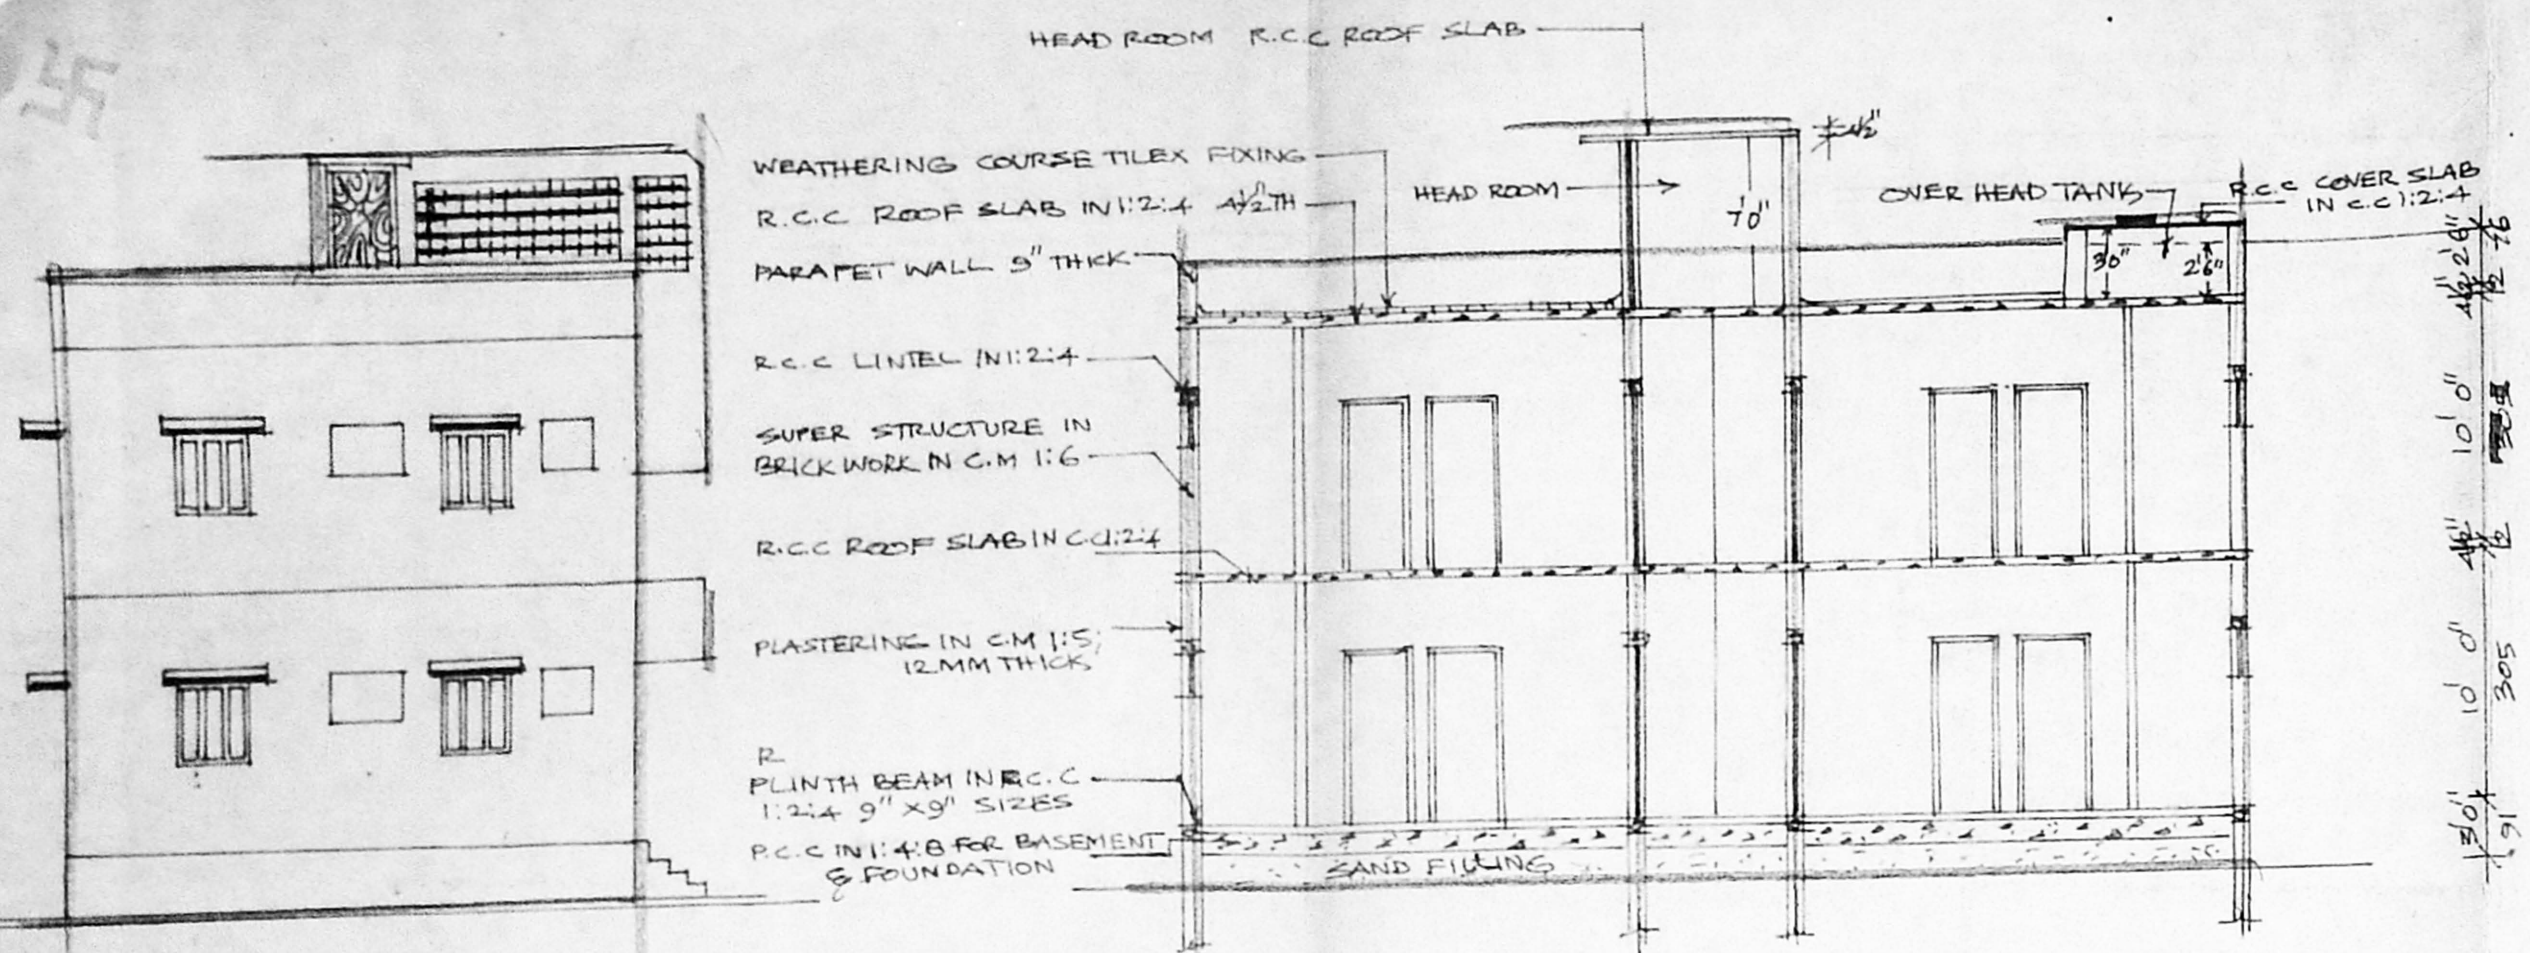 HEAD ROOM R.C.C ROOF SLAB
4½"
WEATHERING COURSE TILEX FIXING
R.C.C ROOF SLAB IN 1:2:4 4½" TH
PARAPET WALL 9" THICK
R.C.C LINTEL IN 1:2:4
SUPER STRUCTURE IN
BRICK WORK IN C.M 1:6
R.C.C ROOF SLAB IN C.C 1:2:4
PLASTERING IN C.M 1:5,
12 MM THICK
R
PLINTH BEAM IN R.C.C
1:2:4 9" X 9" SIZES
P.C.C IN 1:4:8 FOR BASEMENT
& FOUNDATION
HEAD ROOM
7'0"
OVER HEAD TANK
R.C.C COVER SLAB
IN C.C 1:2:4
3'0"
2'6"
SAND FILLING
2'6"
76
4½"
12
10'0"
4½"
12
10'0"
305
3'0"
91